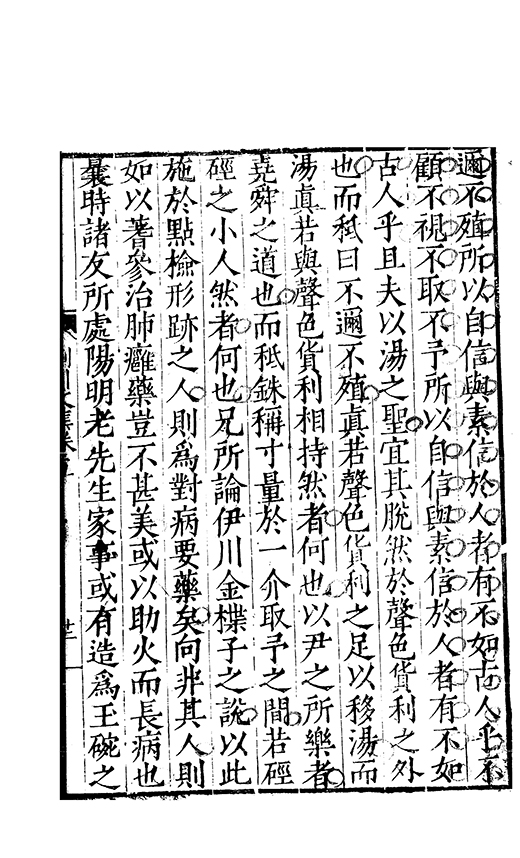 邇不殖所以自信與素信於人者有不如古人乎不
顧不視不取不予所以自信與素信於人者有不如
古人乎且夫以湯之聖宜其脫然於聲色貨利之外
也而秪曰不邇不殖真若聲色貨利之足以移湯而
湯真若與聲色貨利相持然者何也以尹之所樂者
堯舜之道也而秪銖稱寸量於一介取予之間若硜
硜之小人然者何也兄所論伊川金楪子之說以此
施於點檢形跡之人則為對病要藥矣向非其人則
如以蓍參治肺癰藥豈不甚美或以助火而長病也
曩時諸友所處陽明老先生家事或有造為玉碗之
荊川文集卷五
廿二